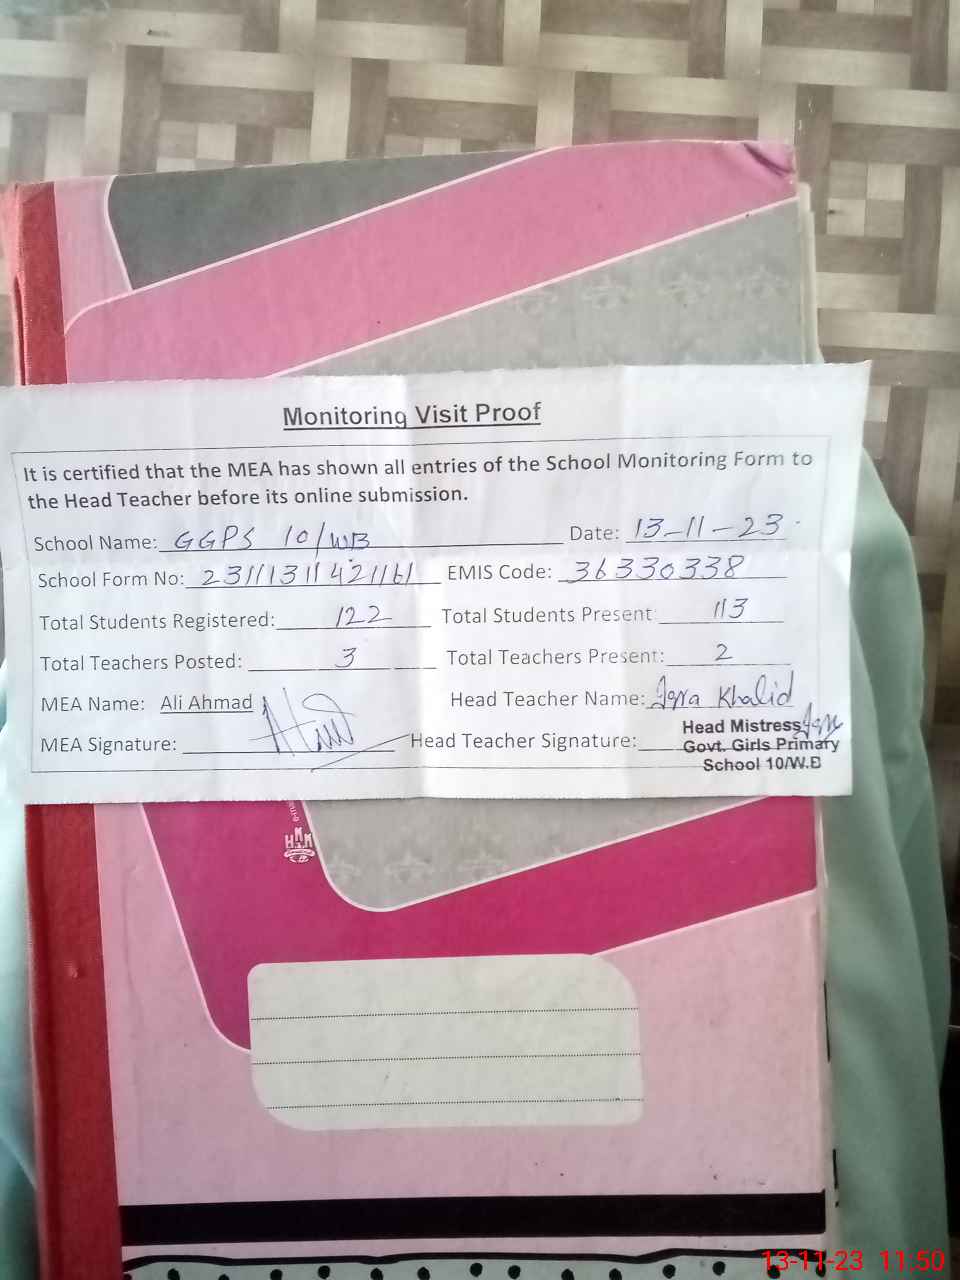 Monitoring Visit Proof
It is certified that the MEA has shown all entries of the School Monitoring Form to
the Head Teacher before its online submission.
School Name: GGPS 10/WB Date: 13-11-23
School Form No: 23111311421161 EMIS Code: 36330338
Total Students Registered: 122 Total Students Present: 113
Total Teachers Posted: 3 Total Teachers Present: 2
MEA Name: Ali Ahmad Head Teacher Name: Iqra Khalid
MEA Signature: Head Teacher Signature:
Head Mistress
Govt. Girls Primary
School 10/W.B
HKK
13-11-23 11.50